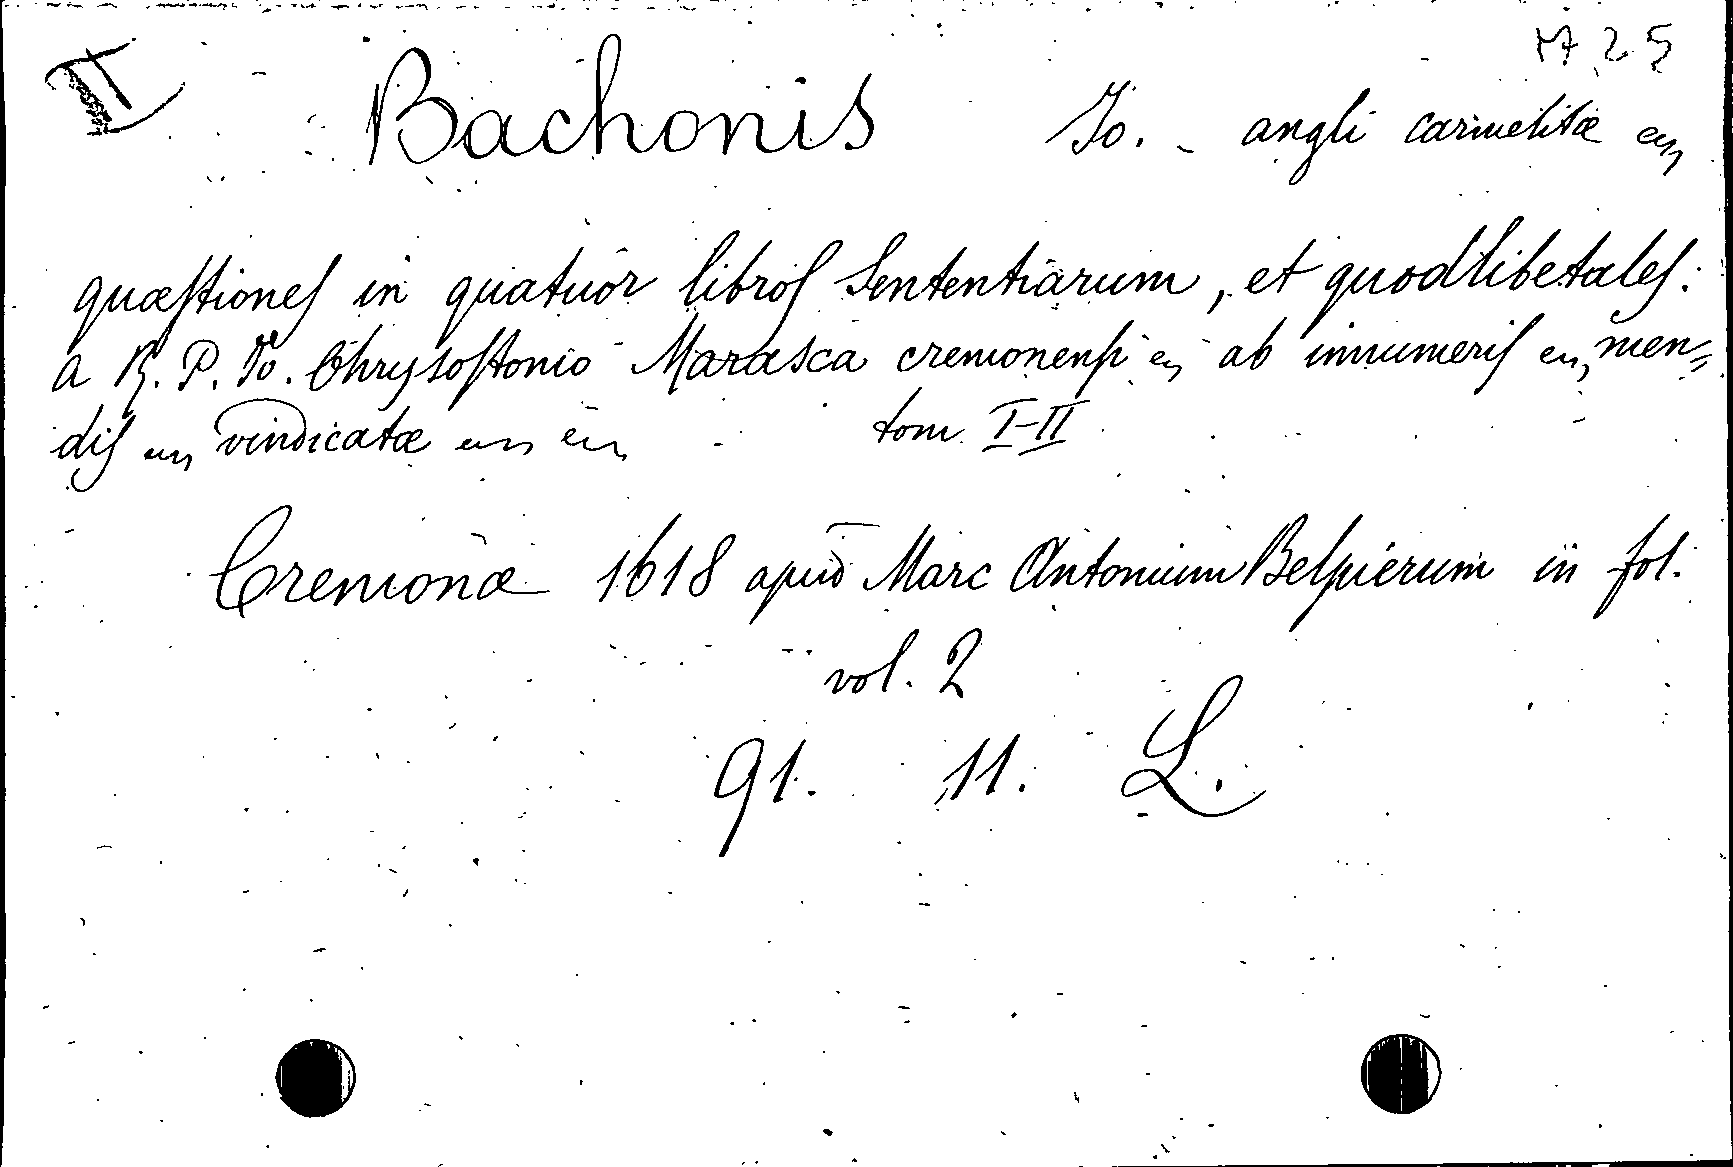 II Bachonis Jo. - angli carmelitæ
quæſtioneſ in quatuor libroſ Sententiarum, et quodlibetaleſ:
a R. P. Jo. Chrysoſtomo Marasca cremonenſi ab innumeriſ men=
diſ vindicatæ tom I-II
Cremonæ 1618 apud Marc Antonium Belpierum in fol.
vol. 2
91. 11. L.